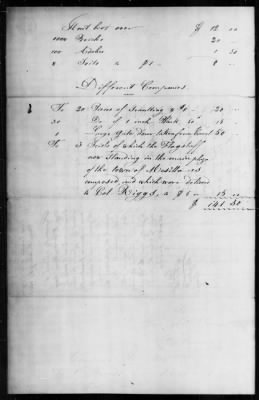 Hunt box over $ 12 00
1000 Bricks 20 "
100 Adobes 1 50
8 Foils a $1 - 8 "
Different Companies
To 20 Pieces of Scantling a $1 " 20 "
" 30 Do of 1 inch Plank 50 " 15 "
" 1 Large Gate Door taken from 50 "
To 3 of which the Flagstaff
now standing in the main plaza
of the town of Mesilla is
composed, and which were
to Col Riggs, a $5 " 15 00
$ 141 50